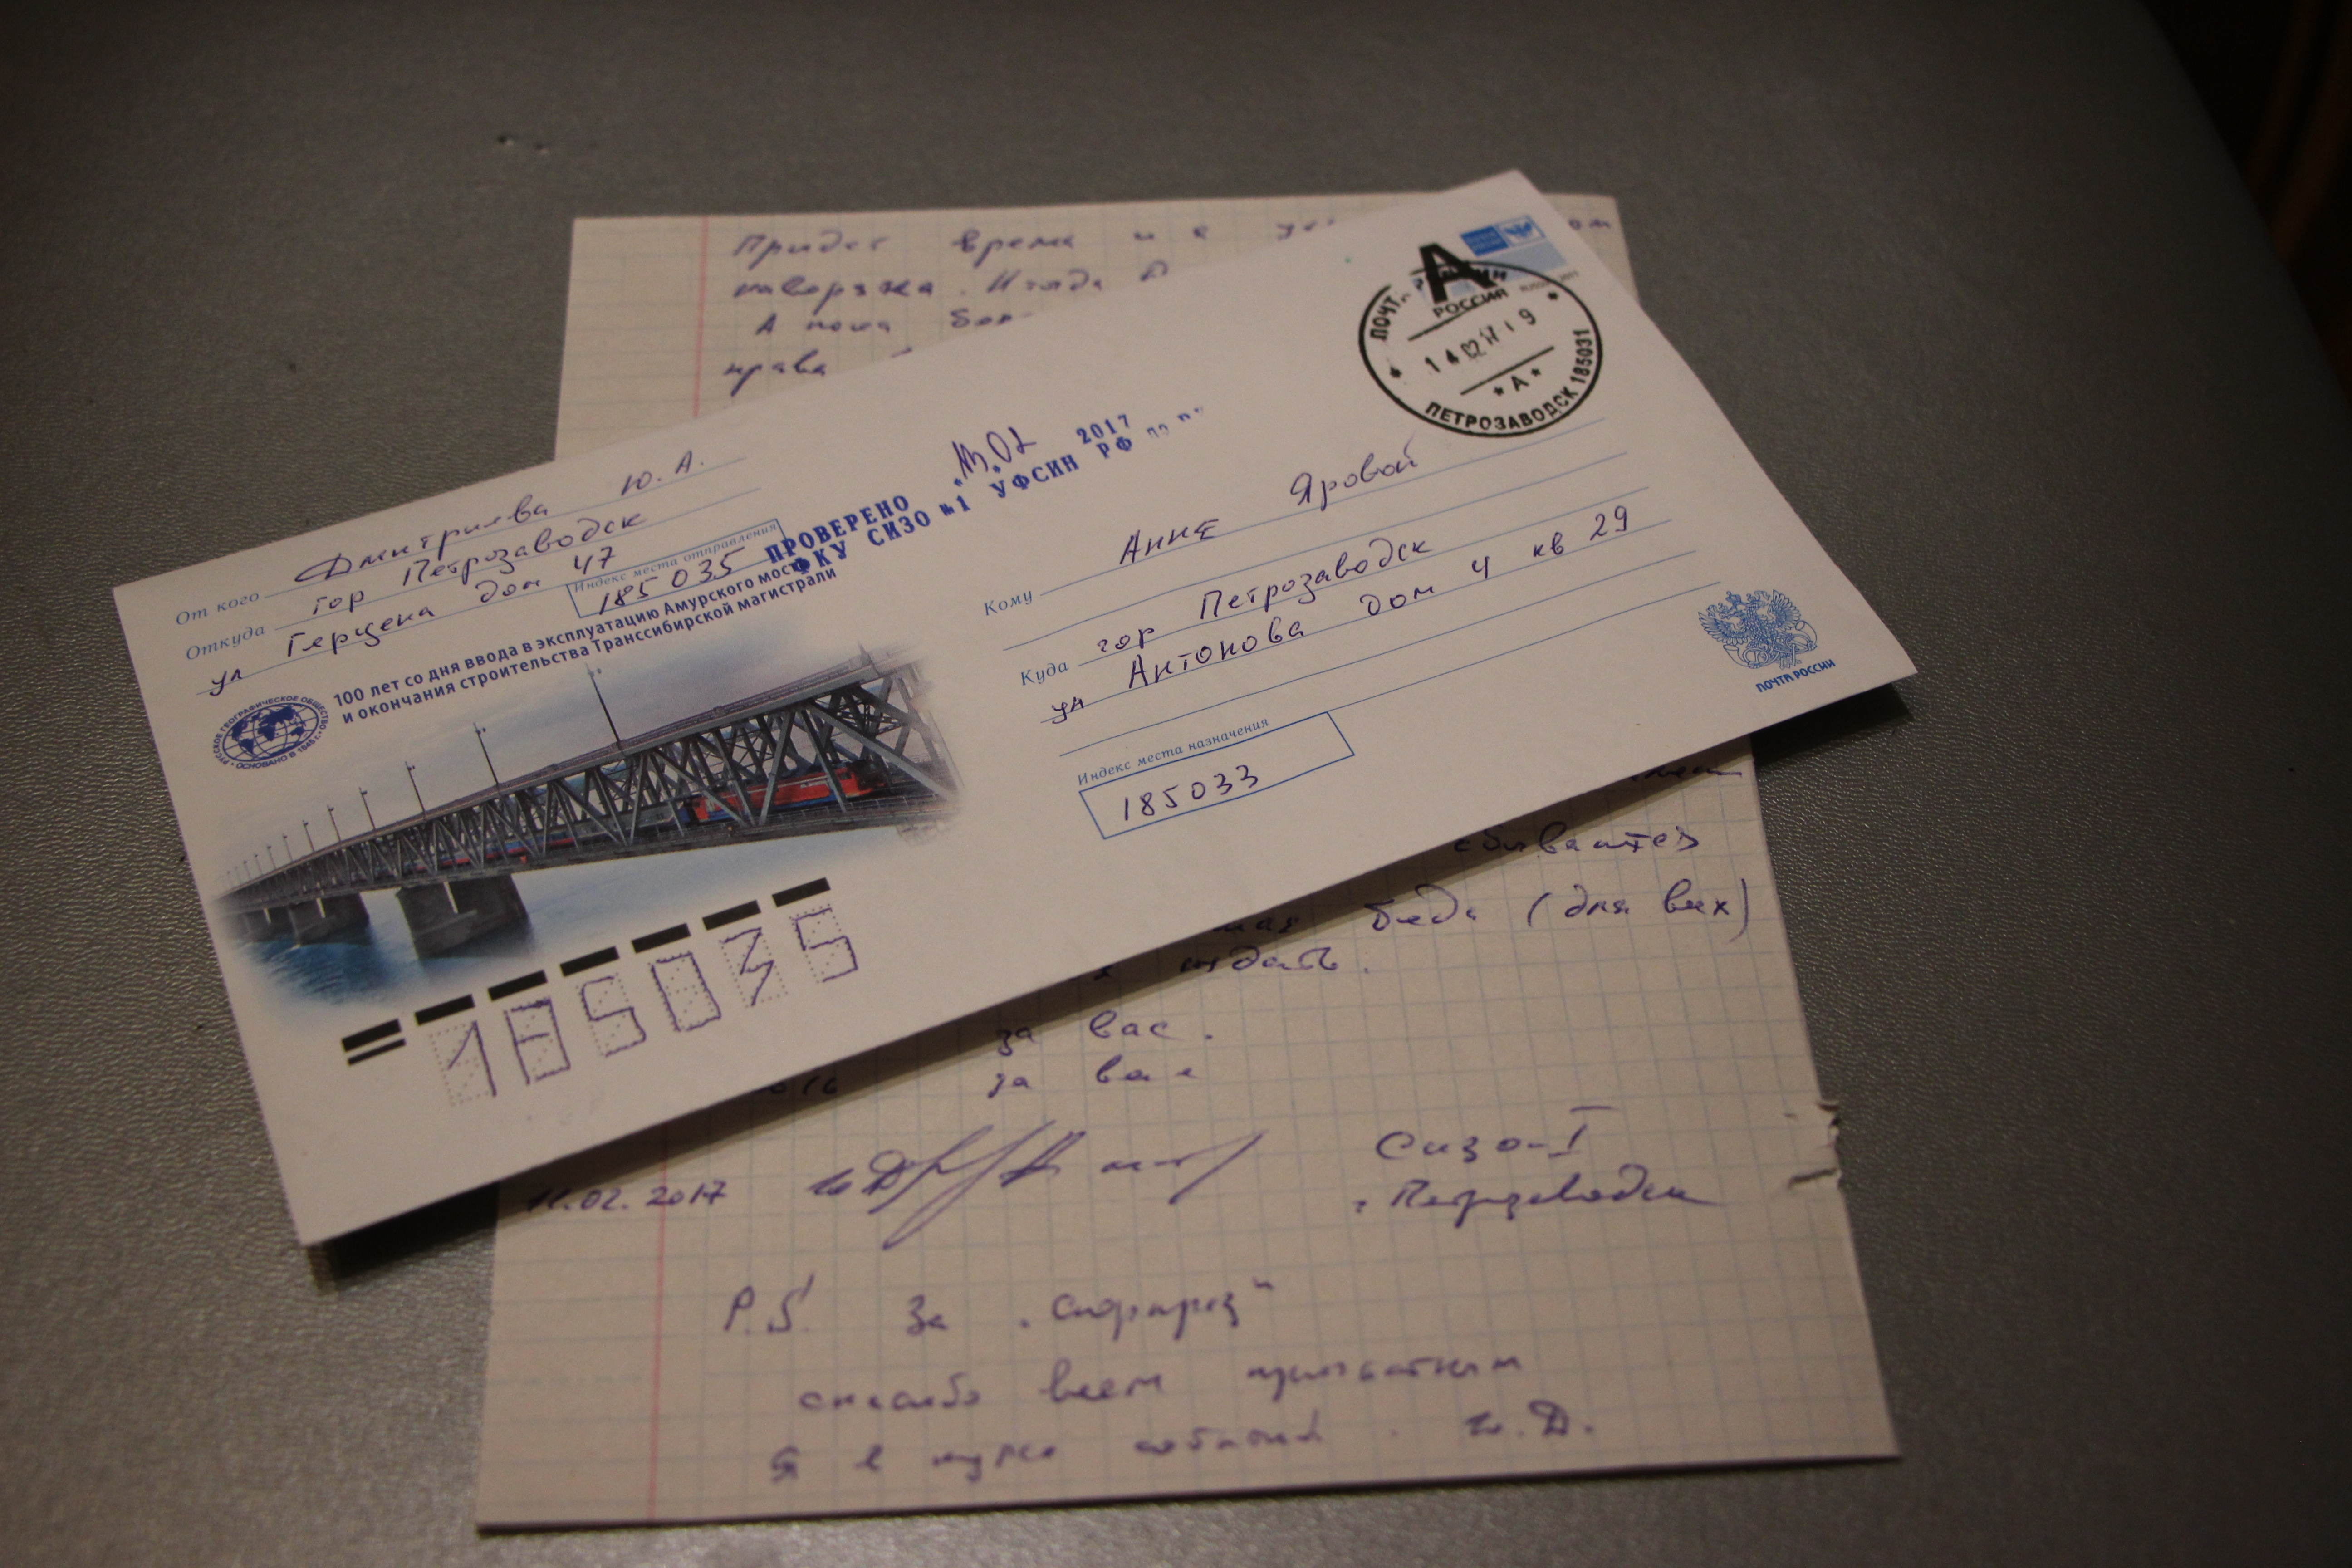 Придет время и я
А пока
права
От кого Дмитриева Ю. А.
Откуда гор Петрозаводск
ул Герцена дом 47
Индекс места отправления
185035
ПРОВЕРЕНО 13.02 2017
ФКУ СИЗО №1 УФСИН РФ
100 лет со дня ввода в эксплуатацию Амурского моста
и окончания строительства Транссибирской магистрали
РУССКОЕ ГЕОГРАФИЧЕСКОЕ ОБЩЕСТВО • ОСНОВАНО В 1845 г. •
185035
А
РОССИЯ
14 02 17 19
* А *
ПЕТРОЗАВОДСК 185031
Кому Анне Яровой
Куда гор Петрозаводск
ул Антонова дом 4 кв 29
Индекс места назначения
185033
ПОЧТА РОССИИ
беда (для вих)
отдать.
за вас.
за вас
11.02.2017
Сизо-I
г. Петрозаводск
P.S. За
спасибо всем
Я в курсе событий. Ю.Д.